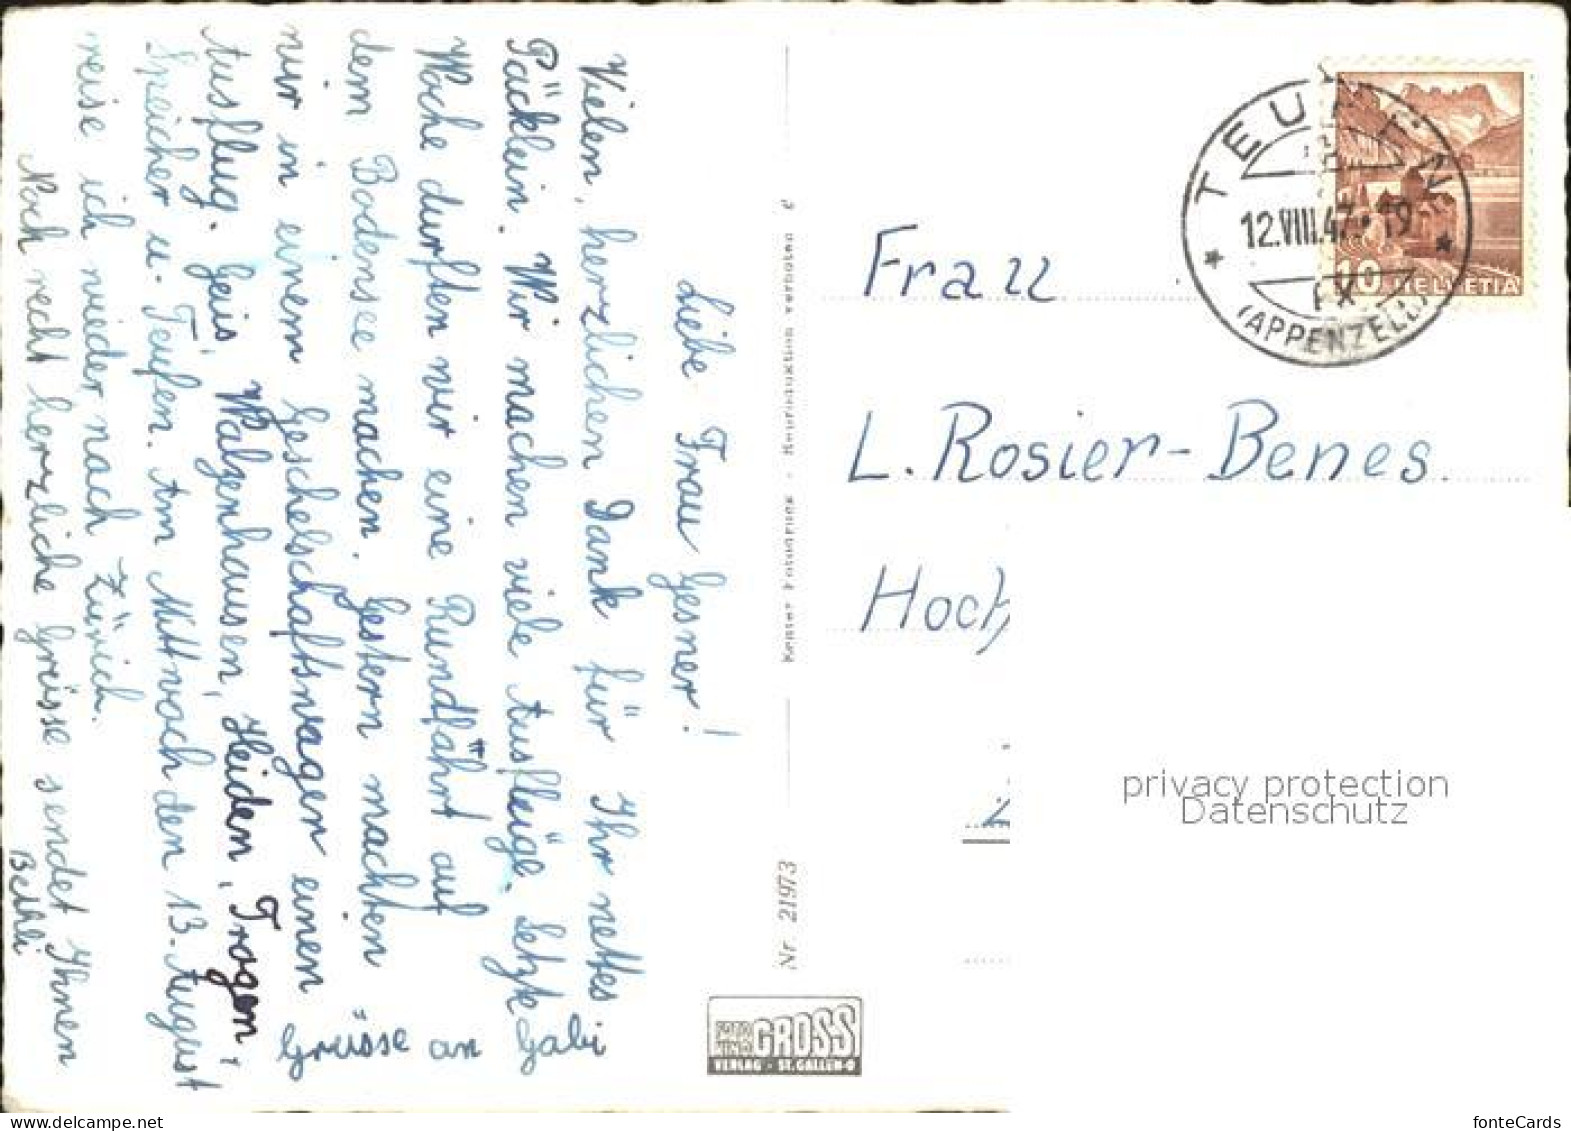 Liebe Frau Gesner!
Vielen, herzlichen Dank für Ihr nettes
Päcklein. Wir machen viele Ausflüge. Letzte
Woche durften wir eine Rundfahrt auf
dem Bodensee machen. Gestern machten
wir in einem Geschelschaftswagen einen
Ausflug. Gais, Walzenhausen, Heiden, Trogen,
Speicher u. Teufen. Am Mittwoch den 13. August
reise ich wieder nach Zürich.
Noch recht herzliche Grüsse sendet Ihnen
Bethli
Grüsse an Gabi
Nr 21973
FOTO GROSS
VERLAG · ST. GALLEN-O
Frau
L. Rosier-Benes.
Hoch
TEUFEN
12.VIII.47.-19
(APPENZELL)
10 HELVETIA
privacy protection
Datenschutz
fonteCards